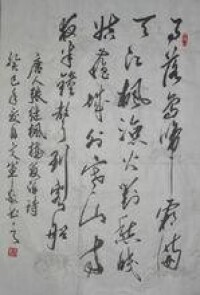 月落乌啼霜满
天江枫渔火对愁眠
姑苏城外寒山寺
夜半钟声到客船
唐人张继枫桥夜泊诗
癸巳年